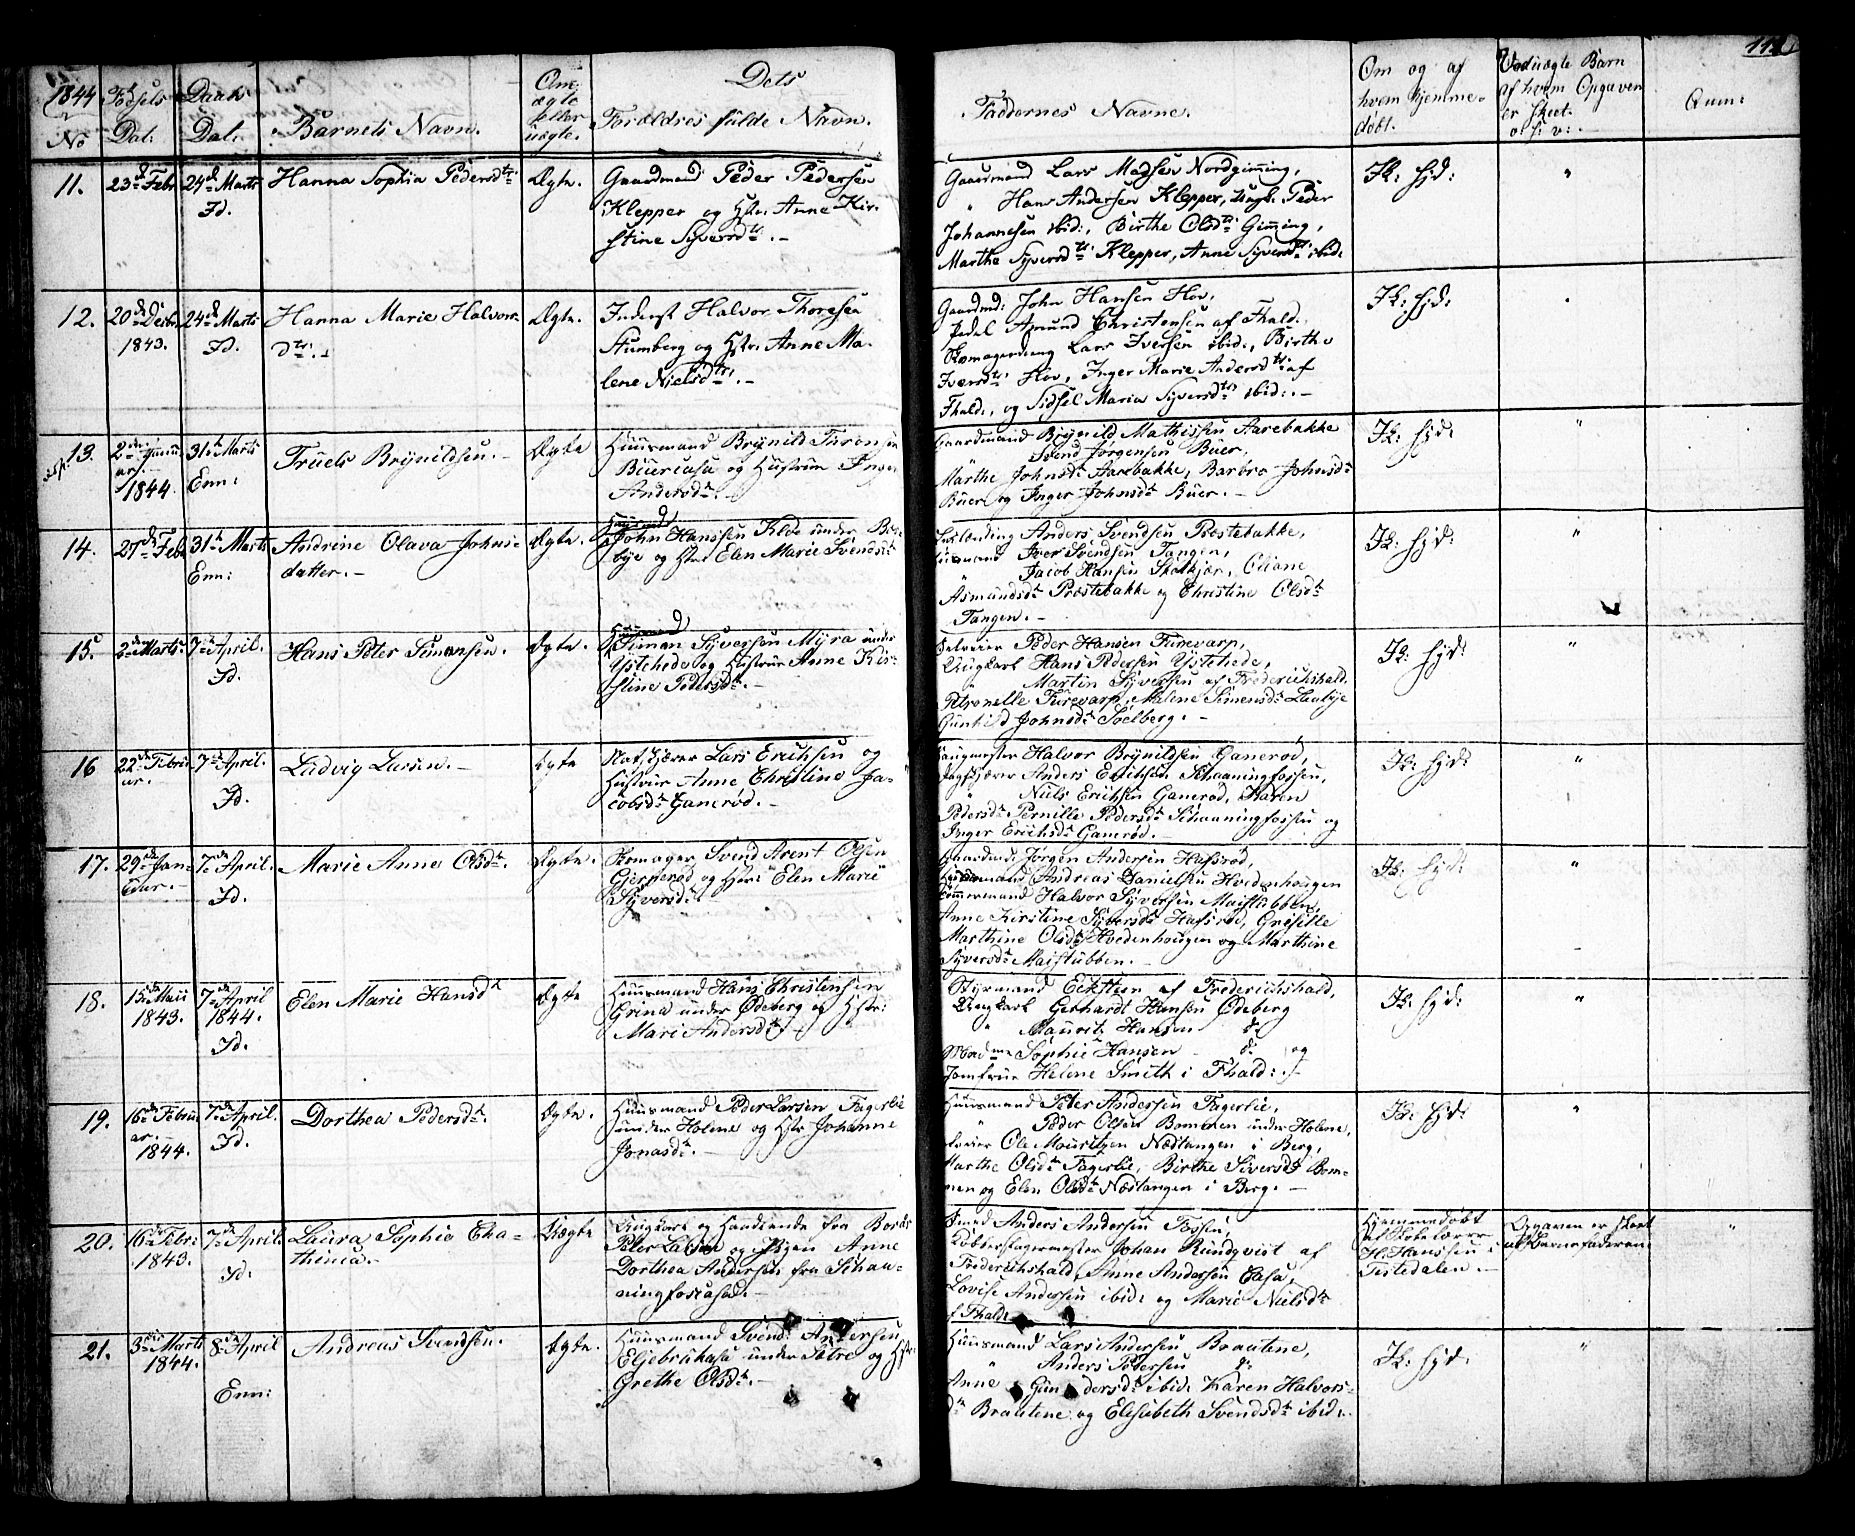 1844
No
Fødsels Dat:
Daab Dat:
Barnets Navn.
Om ægte eller uægte.
Dets Forældres fulde Navn.
Faddernes Navne.
Om og af hvem hjemme-døbt.
Ved uægte Barn af hvem Opgaven er skeet o: s: v:
Anm:
11.
23de Febr
24de Marts
Id.
Hanna Sophia Pedersdtr:
Ægte.
Gaardmand Peder Pedersen
Klepper og Hstr. Anne Kir-
stine Syversdtr. -
Gaardmand Lars Madsen Nordgimming,
" Hans Andersen Klepper, Ungk. Peder
Johannesen ibid:, Birthe Olsdtr Gimming,
Marthe Syversdtr: Klepper, Anne Syversdtr: ibid.
Ik: hjd:
"
12.
20de Decbr
1843.
24de Marts
Id.
Hanna Marie Halvors-
dtr.
Ægte.
Inderst Halvor Thoresen
Stumberg og Hstr. Anne Ma-
lene Nielsdtr. -
Gaardmd: John Hansen Hov,
Pedel Amund Christensen af Fhald.
Skomagerdreng Lars Iversen ibid:, Birthe
Iversdtr: Hov, Inger Marie Andersdtr: af
Fhald:, og Sidsel Maria Syversdtr: ibid:. -
Ik: hjd:
"
13.
2den Janu-
ar.
1844.
31te Marts
Enn:
Truels Brynildsen. -
Ægte
Huusmand Brynild Taronsen
Buercasa og Hustrue Inger
Andersdtr. -
Gaardmand Brynild Mathissen Aarebakke
Svend Jørgensen Buer,
Marthe Johnsdtr Aarebakke, Barbro Johnsdtr
Buer og Inger Johnsdtr Buer. -
Ik: hjd:
"
14.
27de Feb
31te Marts
Enn:
Andrine Olava Johns-
datter. -
Ægte.
Huusmd
John Hanssen Kleve under Bu-
bye og Hstr Elen Marie Svendsdtr
Anders Svendsen Præstebakke,
Iver Svendsen Tangen,
Jacob Hansen Skolkjær, Oliane
Asmundsdtr Præstebakke og Christine Olsdtr
Tangen. -
Ik: hjd:
"
15.
2den Marts
7de April.
Id.
Hans Peter Simonsen.
Ægte.
Huusmand
Simon Syversen Myra under
Ystehede og Hustrue Anne Kir-
stine Pedersdtr. -
Selveier Peder Hansen Furevarp,
Ungkarl Hans Pedersen Ystehede,
" Martin Syversen af Frederichshald.
Petronelle Furevarp, Malene Simensdtr Laubye
Gunhild Johnsdtr Soelberg. -
Ik: hjd:
"
16
22de Febru-
ar. -
7de April.
Id.
Ludvig Larsen. -
Ægte
Lars Erichsen og
Hustrue Anne Christine Ja-
cobsdtr Ganerød. -
Halvor Brynildsen Ganerød,
Anders Erichsen Schaaningfossen,
" Niels Erichsen Ganerød, Karen
Pedersdtr Pernille Pedersdtr Schaaningfossen og
Inger Erichsdtr Ganerød. -
Ik: hjd:
"
17.
29de Jan-
uar. -
7de April.
Id.
Marie Anne Olsdtr.
Ægte.
Skomager Svend Arent Olsen
Gjerperød og Hstr: Elen Marie
Syversdtr
Gaardmd: Jørgen Andersen Hafsrød,
Huusmand Andreas Danielsen Hvedenhougen
Tømmermand Halvor Syversen Maistubben,
Anne Kirstine Syversdtr Hafsrød, Grisille
Marthine Olsdtr Hvedenhougen og Marthine
Syversdtr Maistubben. -
Ik: hjd:
"
18.
15de Maii
1843.
7de April
1844.
Id.
Elen Marie Hansdtr
Ægte
Huusmand Hans Christensen
Grina under Ødeberg og Hstr:
Mari Andersdtr. -
Styrmand Eckstein af Frederichshald,
Ungkarl Gerhardt Hansen Ødeberg
" Mauritz Hansen do
Madme Sophie Hansen do og
Jomfrue Helene Smith i Fhald:.
Ik: hjd:
"
19.
16de Febru-
ar. -
1844.
7de April.
Id.
Dorthea Pedersdtr.
Ægte.
Huusmand Peder Larsen Fagerlie
under Holene og Hstr Johanne
Jonasdtr. -
Huusmand Peter Andersen Fagerlie,
" Peder Olsen Bommen under Holene,
Selveier Ole Mauritzen Næstangen i Berg,
Marthe Olsdtr Fagerlie, Birthe Siversdtr Bom-
men og Elen Olsdtr Næstangen i Berg. -
Ik: hjd:
"
20.
16de Febr
1843.
7de April
Id.
Laura Sophie Cha-
thinca. -
Uægte
Ungkarl og Handlende fra Borås
Peter Larsen og Pigen Anne
Dorthea Andersen fra Schaa-
ningfoscasa. -
Smed Anders Andersen Fossen,
Kobberslagermester Johan Rundqvist af
Frederichshald, Anne Andersen Casa,
Lovise Andersen ibid: og Marie Nielsdtr
af Fhald:
Hjemmedøbt
af Skolelærer
H. Hanssen i
Tistedalen. -
Opgaven er skeet
af Barnefaderen.
"
21.
3die Marts
1844.
8de April
Enn:
Andreas Svendsen.
Ægte.
Huusmand Svend Andersen,
under Sætre og Hstr:
Grethe Olsdtr. -
Huusmand Lars Andersen Braatene,
" Anders Pedersen do
Anne Gundersdtr ibid. Karen Halvors-
dtr Braatene og Elisabeth Svendsdtr ibid:.
Ik: hjd.
"